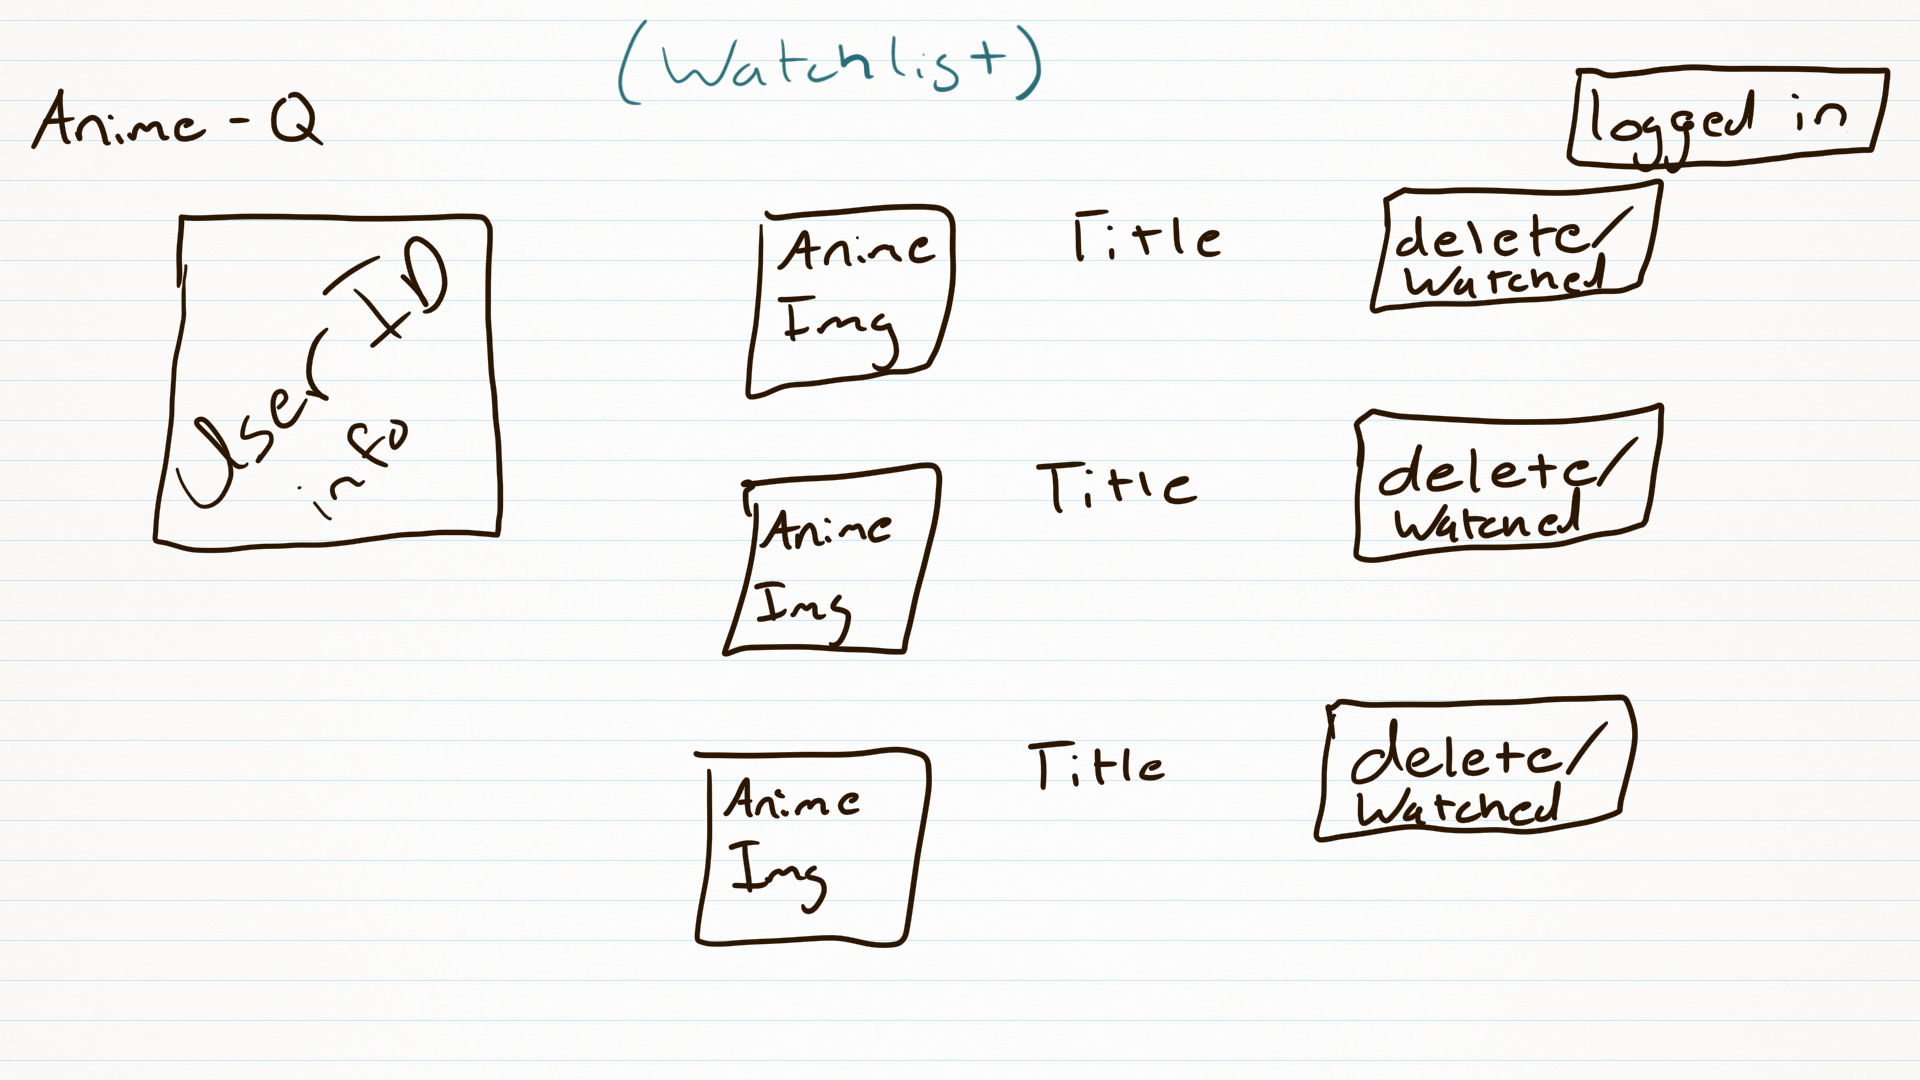 (Watchlist)
Anime - Q
logged in
User ID
info
Anime
Img
Title
delete/
Watched
Anime
Img
Title
delete/
Watched
Anime
Img
Title
delete/
Watched